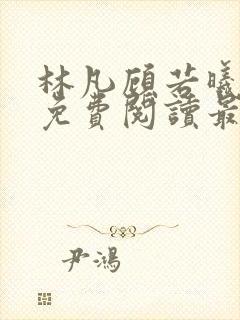 林凡顾若曦
免費閱讀最
尹鴻